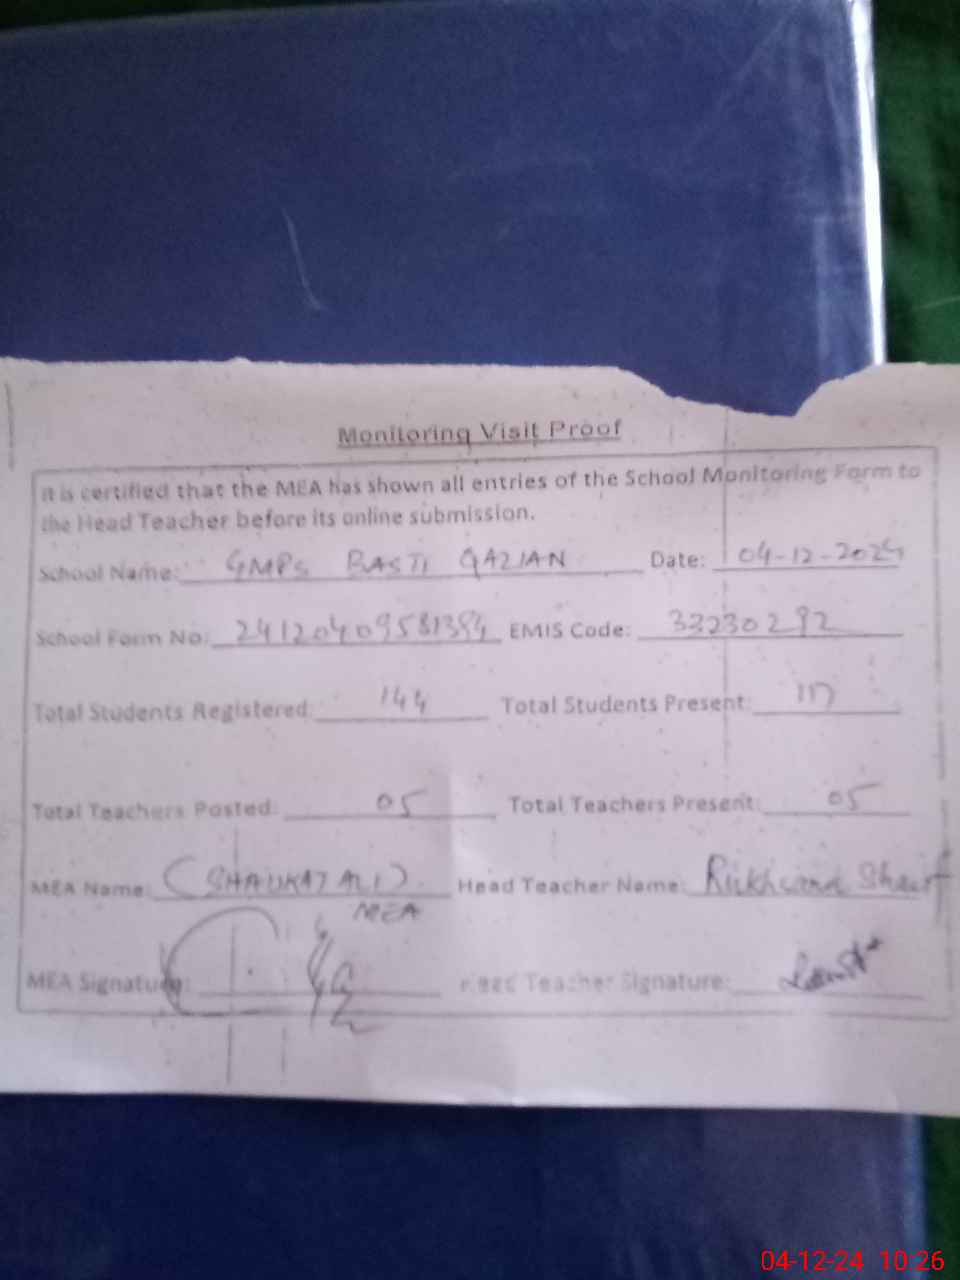 Monitoring Visit Proof
It is certified that the MEA has shown all entries of the School Monitoring Form to
the Head Teacher before its online submission.
School Name: GMPS BASTI QAZIAN Date: 04-12-2024
School Form No: EMIS Code: 33230292
Total Students Registered: 144 Total Students Present:
Total Teachers Posted: 05 Total Teachers Present: 05
MEA Name: (SHAUKAT ALI) Head Teacher Name:
MEA
MEA Signature: Head Teacher Signature:
04-12-24 10:26